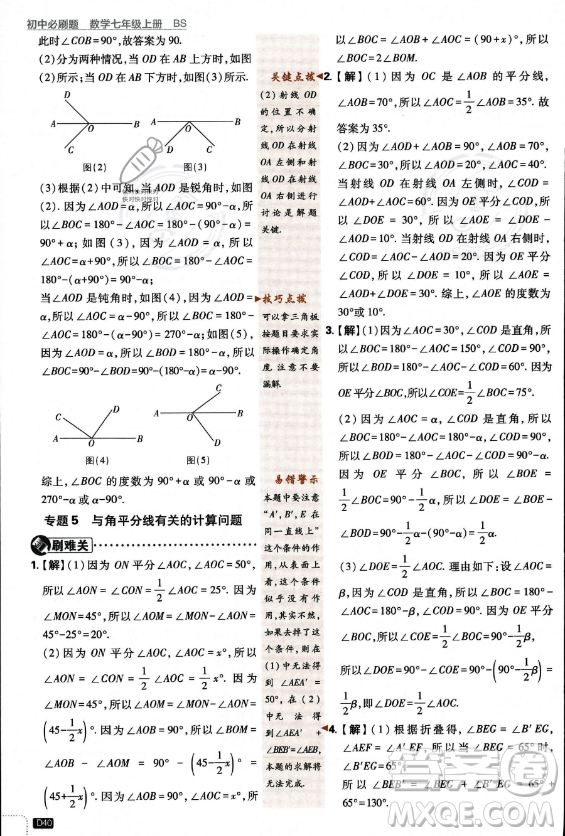 初中必刷题 数学七年级上册 BS
此时∠COB=90°,故答案为90.
(2)分为两种情况,当OD在AB上方时如图
(2)所示;当OD在AB下方时如图(3)所示.
D
A
O
B
C
图(2)
C
A
O
B
D
图(3)
(3)根据(2)中可知,当∠AOD是锐角时,如图
(2).因为∠AOD=α,所以∠AOC=90°-α,所
以∠BOC=180°-∠AOC=180°-(90°-α)=
90°+α;如图(3),因为∠AOD=α,所以
∠AOC=α+90°,所以∠BOC=180°-(α+
90°)=90°-α;
当∠AOD是钝角时,如图(4),因为∠AOD=α,
所以∠AOC=α-90°,所以∠BOC=180°-
∠AOC=180°-(α-90°)=270°-α;如图(5),
因为∠AOD=α,所以∠BOD=180°-α,所以
∠BOC=90°-∠BOD=90°-(180°-α)=α-
90°.
C
D
A
O
B
图(4)
A
O
B
C
D
图(5)
综上,∠BOC的度数为90°+α或90°-α或
270°-α或α-90°.
专题5 与角平分线有关的计算问题
刷难关
1.【解】(1)因为ON平分∠AOC,∠AOC=50°,
所以∠AON=∠CON=1/2∠AOC=25°.因为
∠MON=45°,所以∠AOM=∠MON-∠AON=
45°-25°=20°.
(2)因为ON平分∠AOC,∠AOC=x°,所以
∠AON=∠CON=1/2∠AOC=1/2x°.因为
∠MON=45°,所以∠AOM=∠MON-∠AON=
(45-1/2x)°.因为∠AOB=90°,所以∠BOM=
∠AOB-∠AOM=90°-(45-1/2x)°=
(45+1/2x)°.
D40
关键点拨
(2)射线OD
的位置不确
定,所以分射
线OD在射线
OA左侧和射
线OD在射线
OA右侧进行
讨论是解题
关键.
技巧点拨
可以拿三角板
按题目要求实
际操作确定角
度,注意不要
漏解.
易错警示
本题中要注意
“A′,B′,E在
同一直线上”
这个条件的作
用,这个条件
似乎没有作
用,其实不然.
如果去掉了这
个条件,则在
(1)中无法得
到∠AEA′=
50°,在(2)
中无法得到
∠AEA′+
∠BEB′=∠AEN,
本题的求解将
无法完成.
2.【解】(1)因为OC是∠AOB的平分线,
∠AOB=70°,所以∠AOC=1/2∠AOB=35°.故
答案为35°.
(2)因为∠AOB+∠BOE=90°,∠AOB=70°,
所以∠BOE=20°,所以∠AOE=90°.
当射线OD在射线OA左侧时,∠COD=
∠AOD+∠AOC=60°.因为OE平分∠COD,所
以∠DOE=30°,所以∠AOE=∠DOE-
∠AOD=5°.当射线OD在射线OA右侧时,
∠COD=∠AOC-∠AOD=10°.因为OE平分
∠COD,所以∠DOE=5°,所以∠AOE=
∠AOD+∠DOE=30°.综上,∠AOE的度数为
30°或10°.
3.【解】(1)因为∠AOC=30°,∠COD是直角,所
以∠BOC=180°-∠AOC=150°,∠COD=90°,
所以∠BOD=∠BOC-∠COD=60°.因为
OE平分∠BOC,所以∠BOE=1/2∠BOC=75°.
(2)因为∠AOC=α,∠COD是直角,所以
∠BOC=180°-α,∠COD=90°,所以∠BOD=
90°-α.因为OE平分∠BOC,所以∠BOE=
1/2∠BOC=90°-1/2α,所以∠DOE=∠BOE-
∠BOD=90°-1/2α-(90°-α)=1/2α.
(3)∠DOE=1/2∠AOC.理由如下:设∠AOC=
β,则∠BOC=180°-β,所以∠BOC=180°-
∠AOC=180°-β,∠COD=90°.因为OE平分
∠BOC,所以∠COE=∠BOE=1/2∠BOC=90°-
1/2β,所以∠DOE=90°-∠COE=90°-(90°-1/2β)=
1/2β,即∠DOE=1/2∠AOC.
4.【解】(1)根据折叠得,∠BEG=∠B′EG,
∠AEF=∠A′EF.所以∠BEG=65°时,
∠B′EG=65°,所以∠BEB′=65°+
65°=130°.